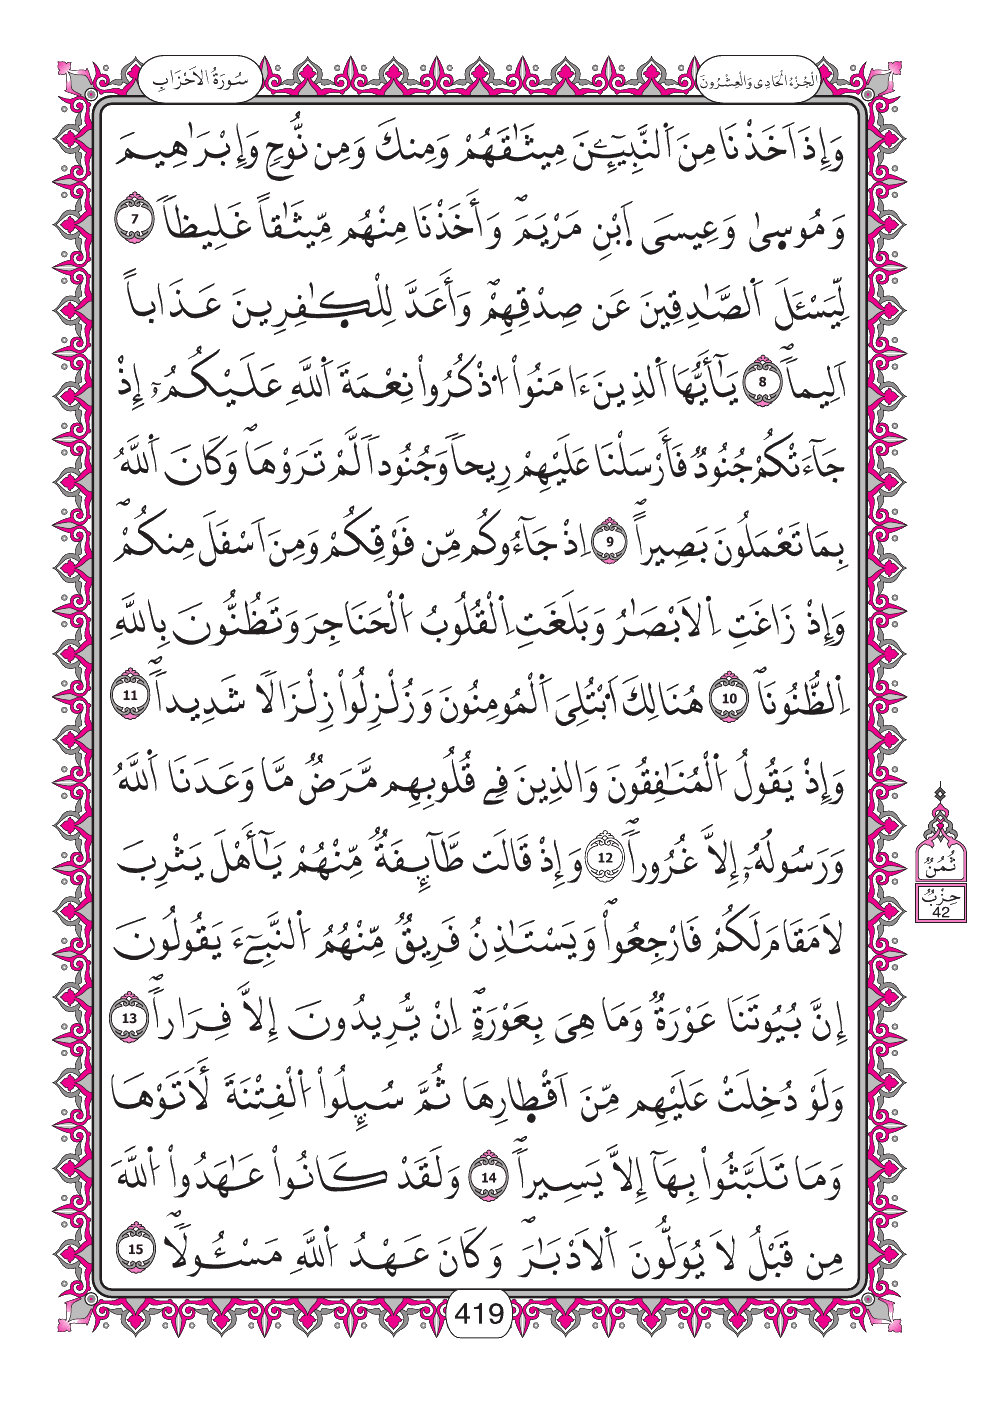 سُورَةُ الاَحْزَابِ
الْجُزْءُ الْحَادِي وَالْعِشْرُونَ
وَإِذَ اَخَذْنَا مِنَ اَ۬لنَّبِيٓـِٕۧنَ مِيثَٰقَهُمْ وَمِنكَ وَمِن نُّوحٖ وَإِبْرَٰهِيمَ
وَمُوس۪يٰ وَعِيسَي اَ۪بْنِ مَرْيَمَۖ وَأَخَذْنَا مِنْهُم مِّيثَٰقاً غَلِيظاٗ 7
لِّيَسْـَٔلَ اَ۬لصَّٰدِقِينَ عَن صِدْقِهِمْۖ وَأَعَدَّ لِلْكٰ۪فِرِينَ عَذَاباً
اَلِيماٗۖ 8 يَٰٓأَيُّهَا اَ۬لذِينَ ءَامَنُواْ اُ۟ذْكُرُواْ نِعْمَةَ اَ۬للَّهِ عَلَيْكُمُۥٓ إِذْ
جَآءَتْكُمْ جُنُودٞ فَأَرْسَلْنَا عَلَيْهِمْ رِيحاٗ وَجُنُوداٗ لَّمْ تَرَوْهَاۖ وَكَانَ اَ۬للَّهُ
بِمَا تَعْمَلُونَ بَصِيراًۖ 9 اِذْ جَآءُوكُم مِّن فَوْقِكُمْ وَمِنَ اَسْفَلَ مِنكُمْۖ
وَإِذْ زَاغَتِ اِ۬لَابْصَٰرُ وَبَلَغَتِ اِ۬لْقُلُوبُ اُ۬لْحَنَاجِرَ وَتَظُنُّونَ بِاللَّهِ
اِ۬لظُّنُونَاۖ 10 هُنَالِكَ اَ۟بْتُلِيَ اَ۬لْمُومِنُونَ وَزُلْزِلُواْ زِلْزَالاٗ شَدِيداٗۖ 11
وَإِذْ يَقُولُ اُ۬لْمُنَٰفِقُونَ وَالذِينَ فِے قُلُوبِهِم مَّرَضٞ مَّا وَعَدَنَا اَ۬للَّهُ
وَرَسُولُهُۥٓ إِلاَّ غُرُوراٗۖ 12 وَإِذْ قَالَت طَّآئِفَةٞ مِّنْهُمْ يَٰٓأَهْلَ يَثْرِبَ
لَا مَقَامَ لَكُمْ فَارْجِعُواْۖ وَيَسْتَٰذِنُ فَرِيقٞ مِّنْهُمُ اُ۬لنَّبِيٓءَ يَقُولُونَ
إِنَّ بُيُوتَنَا عَوْرَةٞ وَمَا هِيَ بِعَوْرَةٍۖ اِنْ يُّرِيدُونَ إِلاَّ فِرَاراٗۖ 13
وَلَوْ دُخِلَتْ عَلَيْهِم مِّنَ اَقْط۪ارِهَا ثُمَّ سُئِلُواْ اُ۬لْفِتْنَةَ لَأَتَوْهَا
وَمَا تَلَبَّثُواْ بِهَآ إِلاَّ يَسِيراٗۖ 14 وَلَقَدْ كَانُواْ عَٰهَدُواْ اُ۬للَّهَ
مِن قَبْلُ لَا يُوَلُّونَ اَ۬لَادْبَٰرَۖ وَكَانَ عَهْدُ اُ۬للَّهِ مَسْـُٔولاٗۖ 15
ثُمُنٌ
حِزْبُ
42
419